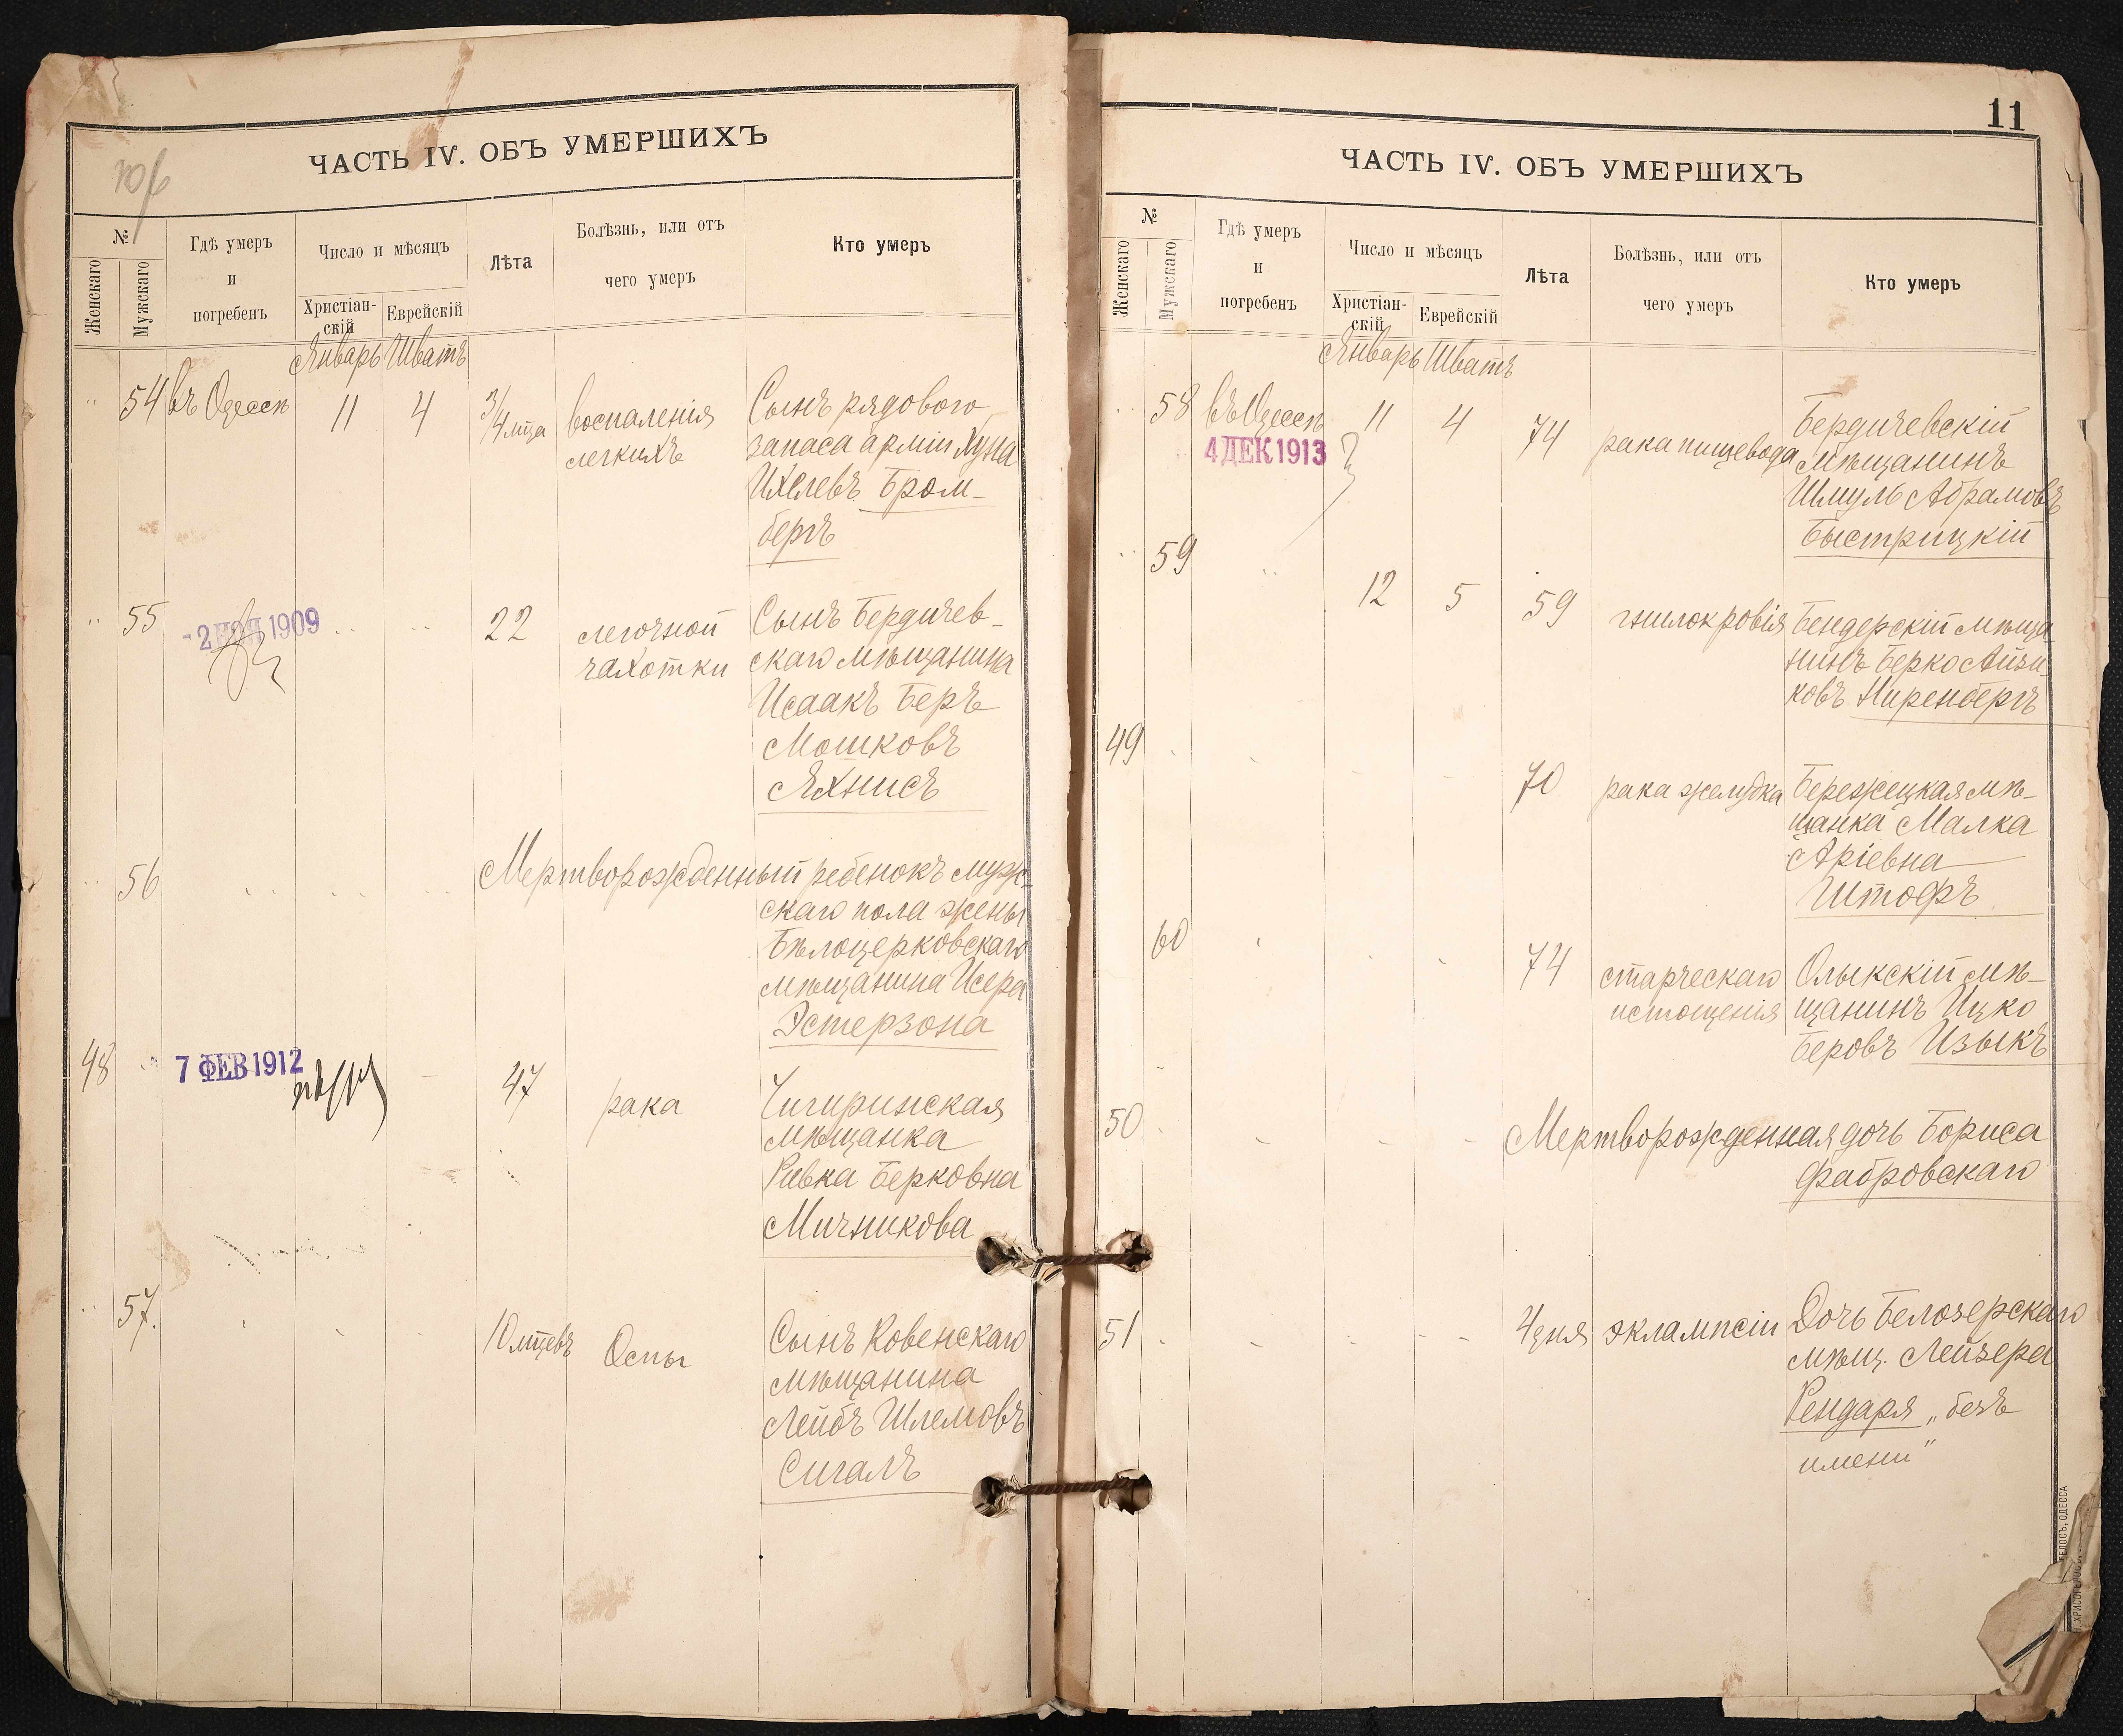 ЧАСТЬ IV. ОБЪ УМЕРШИХЪ
№
Женскаго
Мужскаго
Гдѣ умеръ
и
погребенъ
Число и мѣсяцъ
Христіан-
скій
Еврейскій
Лѣта
Болѣзнь, или отъ
чего умеръ
Кто умеръ
Январь Шватъ
" 54 въ Одессѣ 11 4 3/4 мца воспаленія Сынъ рядового
легкихъ запаса арміи Хуна
Ихелевъ Бром-
бергъ
" 55 -2 НОЯ 1909 " " 22 легочной Сынъ Бердичев-
чахотки скаго мѣщанина
Исаакъ Беръ
Мошковъ
Яхнисъ
" 56 Мертворожденный ребенокъ муж-
скаго пола жены
Бѣлоцерковскаго
мѣщанина Исера
Эстерзона
48 7 ФЕВ 1912 47 рака Чигиринская
мѣщанка
Ривка Берковна
Мичникова
" 57. 10 мцевъ Оспы Сынъ Ковенскаго
мѣщанина
Лейбъ Шлемовъ
Сигалъ
11
ЧАСТЬ IV. ОБЪ УМЕРШИХЪ
№
Женскаго
Мужскаго
Гдѣ умеръ
и
погребенъ
Число и мѣсяцъ
Христіан-
скій
Еврейскій
Лѣта
Болѣзнь, или отъ
чего умеръ
Кто умеръ
Январь Шватъ
" 58 въ Одессѣ 11 4 74 рака пищевода Бердичевскій
4 ДЕК 1913 мѣщанинъ
Шмуль Абрамовъ
Быстрицкій
" 59 " 12 5 59 гнилокровія Бендерскій мѣща-
нинъ Берко Айзи-
ковъ Ниренбергъ
49 70 рака желудка Бережецкая мѣ-
щанка Малка
Аріевна
Штофъ
60 74 старческаго Олыкскій мѣ-
истощенія щанинъ Ицко
Беровъ Изыкъ
50 Мертворожденная дочь Бориса
Фабровскаго
51 4 дня эклампсіи Дочь Белозерскаго
мѣщ. Лейзера
Рендаря „безъ
имени"